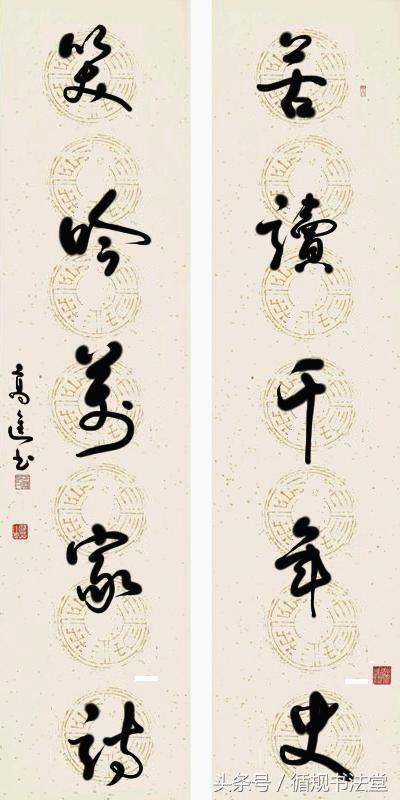 苦讀千年史
笑吟萬家詩
高逵书
头条号 / 循规书法堂